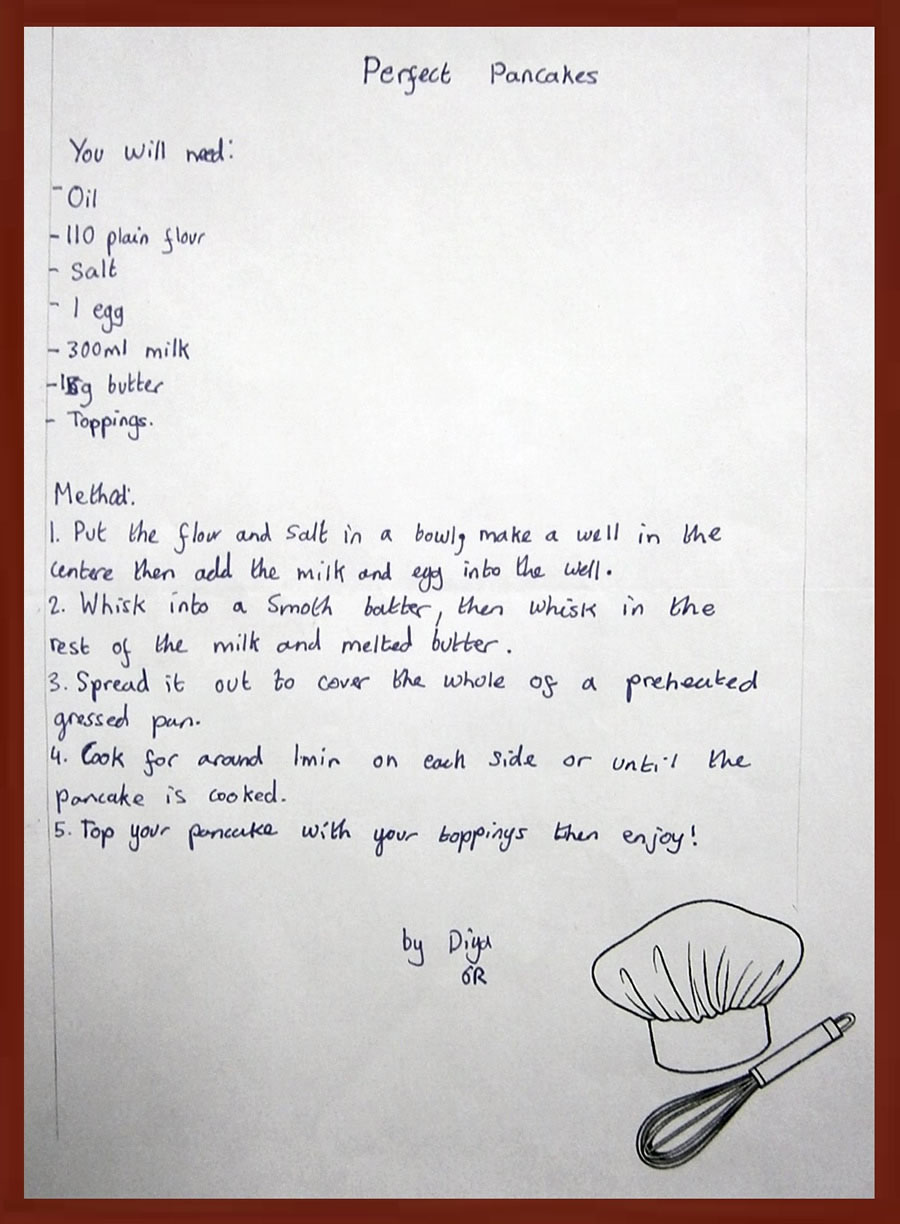 Perfect Pancakes
You will need:
- Oil
- 110 plain flour
- Salt
- 1 egg
- 300ml milk
- 15g butter
- Toppings.
Method:
1. Put the flour and salt in a bowl, make a well in the
centere then add the milk and egg into the well.
2. Whisk into a Smoth batter, then whisk in the
rest of the milk and melted butter.
3. Spread it out to cover the whole of a preheated
gressed pan.
4. Cook for around 1min on each side or until the
pancake is cooked.
5. Top your pancake with your toppings then enjoy!
by Diya
6R